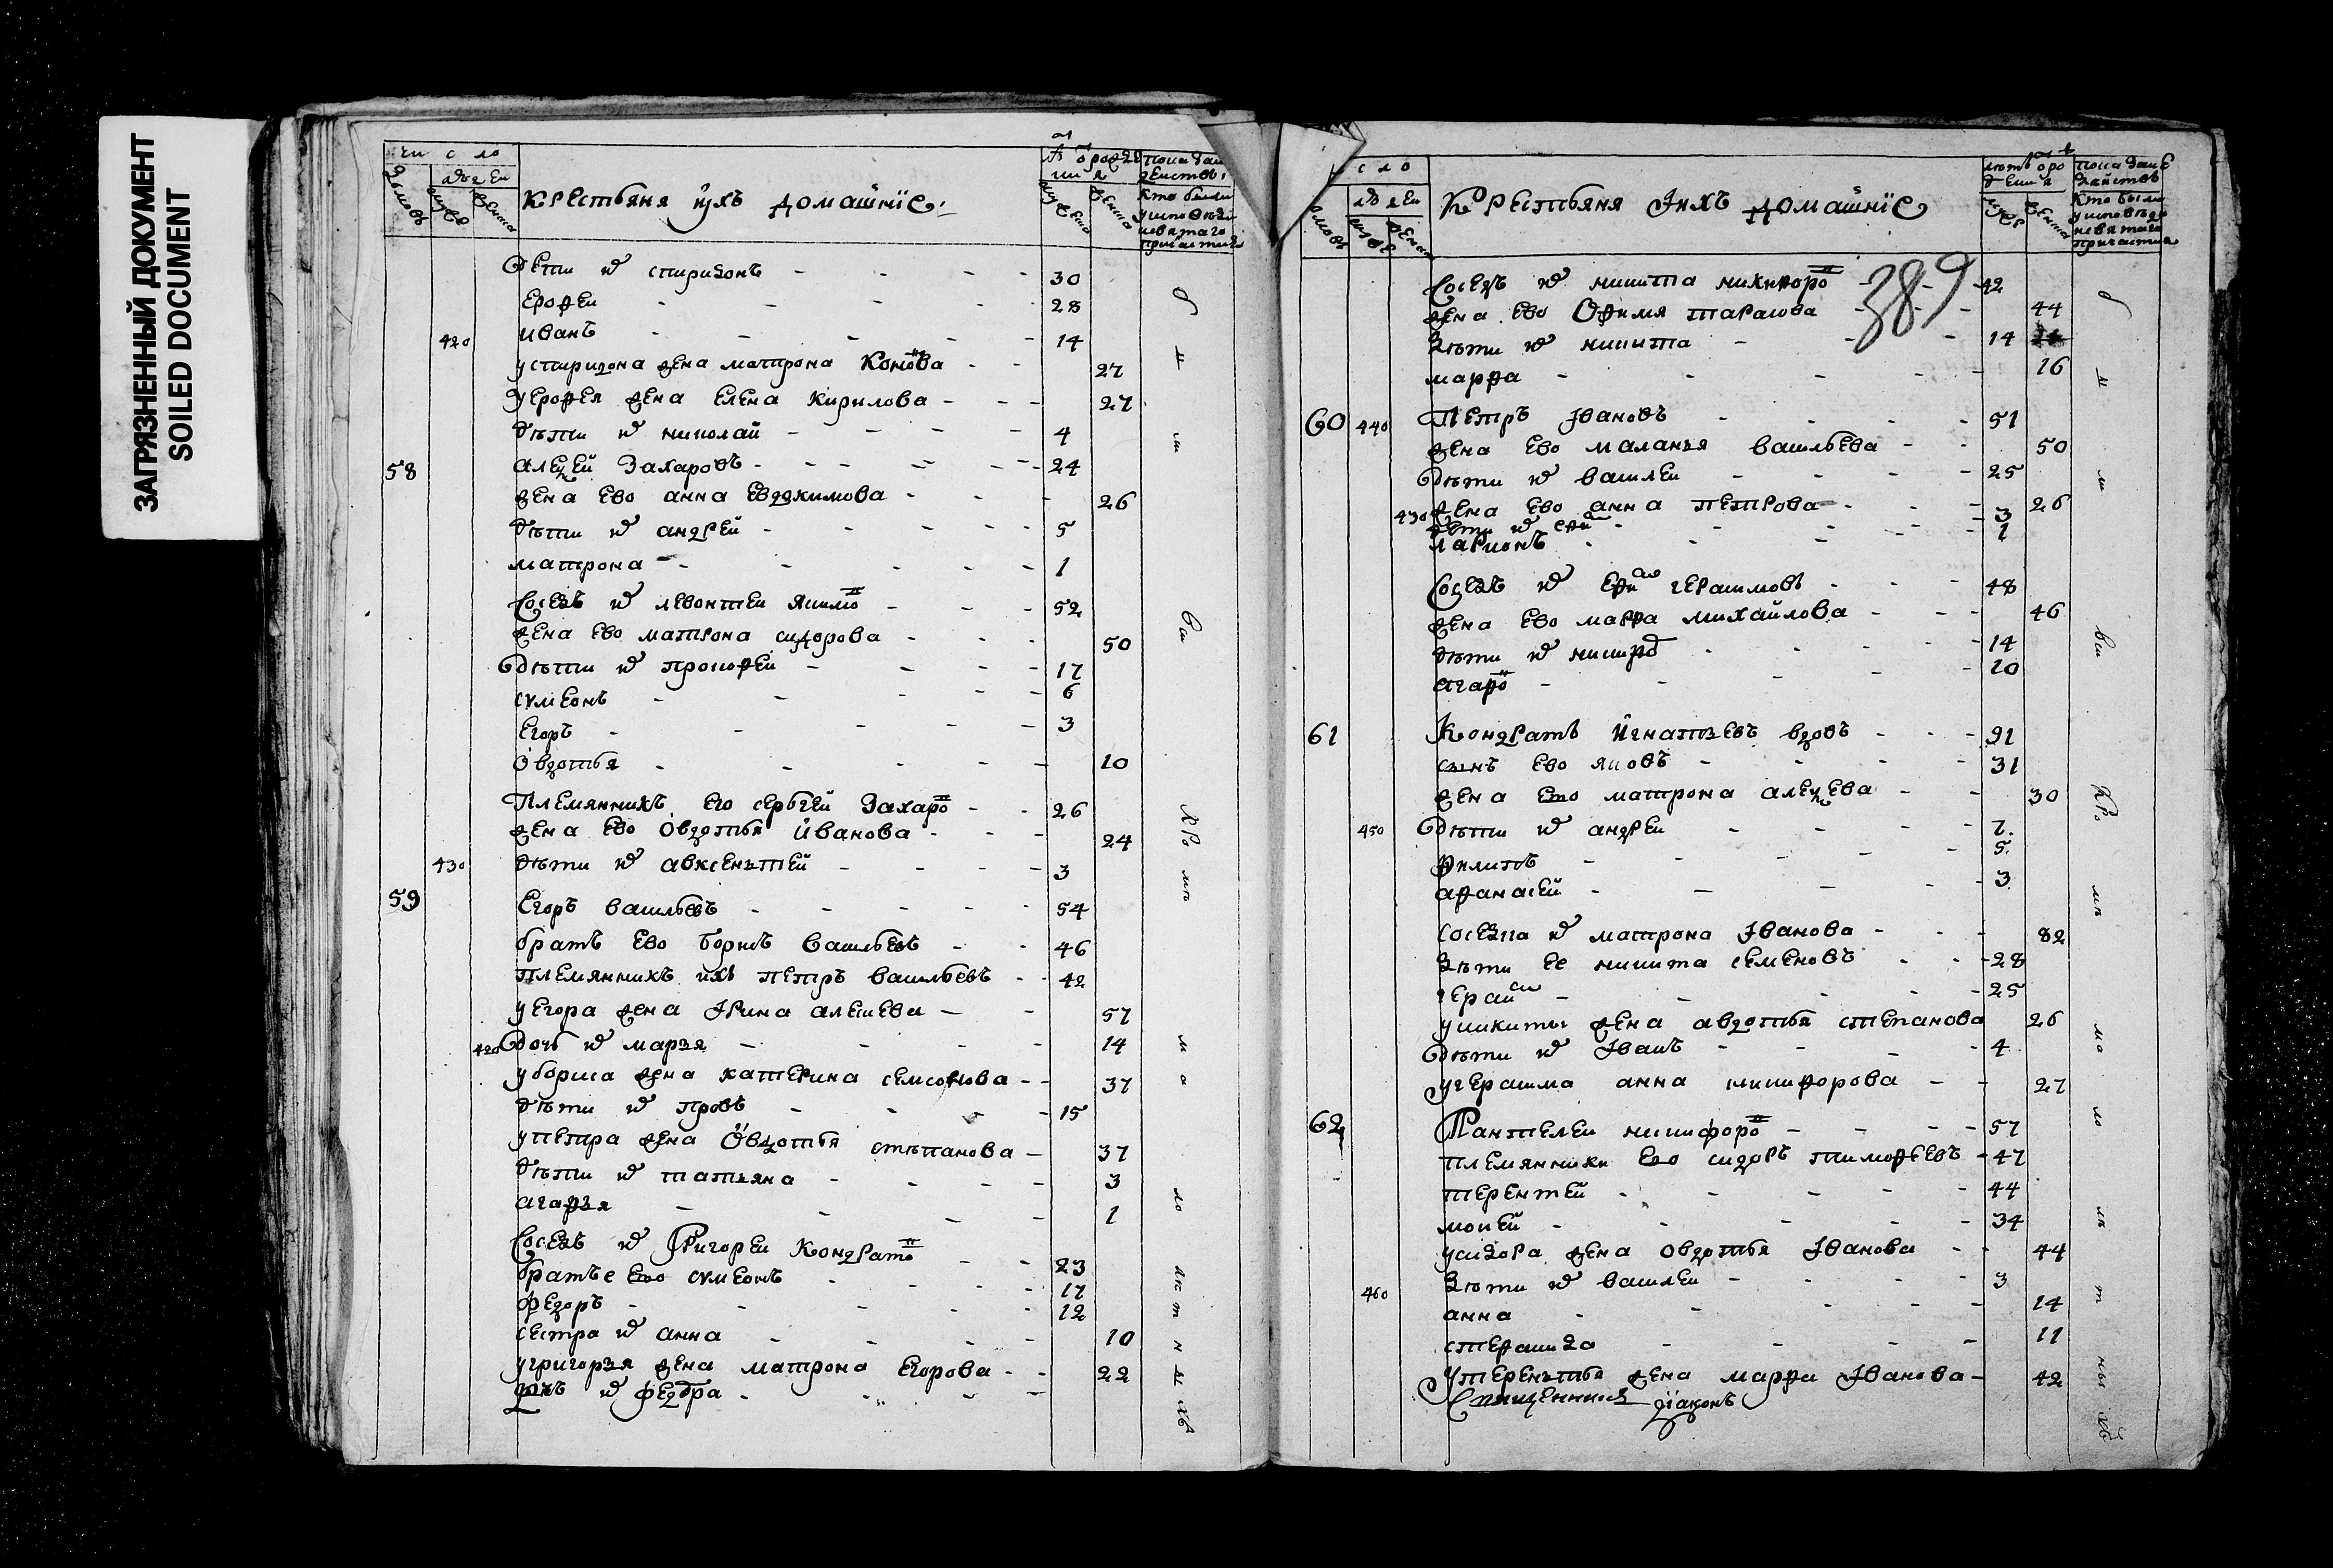 ЗАГРЯЗНЕННЫЙ ДОКУМЕНТ
SOILED DOCUMENT
чи с ло
Крестьяня ихъ домашніе
Дети и спиридонъ - 30
Ерофеи - 28
420 иванъ - 14
успиридона жена матрона Кононова - 27
уерофея жена Елена Кирилова - 27
дѣти и николай - 4
58 алеѯей Захаровъ - 24
жена ево анна Евдокимова - 26
дѣти и андрей - 5
матрона - 1
Соседъ и левонтеи якимо - 52
жена ево матрона сидорова - 50
дѣти и прокофеи - 17
сѵмеонъ - 6
Егоръ - 3
Овдотья - 10
Племянникъ его сергѣй Захаро - 26
жена ево Овдотья иванова - 24
430 дѣти и авксентей - 3
59 Егоръ васильевъ - 54
братъ ево борисъ васильевъ - 46
племянникъ ихъ петръ васильевъ - 42
уегора жена Ирина алексеева - 57
420 дочь и марья - 14
убориса жена катерина семсонова - 37
дѣти и провъ - 15
упетра жена Овдотья стѣпанова - 37
дѣти и татьяна - 3
агафья - 1
Соседъ и Григореи Кондрато - 23
братье ево сѵмеонъ - 17
федоръ - 12
сестра и анна - 10
угригорья жена матрона Егорова - 22
дочь и федора -
с л о
Крестьяня Ихъ домашніе
389
Соседъ и никита никифоро - 42
жена ево Офимя тарасова - 44
дѣти и никита - 14
марфа - 16
60 440 Петръ Івановъ - 51
жена ево маланья васильева - 50
дѣти и василеи - 25
430 жена ево анна петрова - 26
дети и - 3
ларионъ - 1
Соседъ и герасимовъ - 48
жена ево марфа михаилова - 46
дѣти и никифо - 14
агафо - 10
61 Кондратъ игнатьевъ вдовъ - 91
сынъ ево яковъ - 31
жена ево матрона алеѯева - 30
450 дѣти и андреи - 7
филипъ - 5
афанасей - 3
соседка и матрона Іванова - 82
дѣти ее никита семеновъ - 28
гераси - 25
уникиты жена авдотья степанова 26
дѣти и Іванъ - 4
угерасима анна никифорова - 27
62 Пантелеи никифоро - 57
племянники ево сидоръ тимофеевъ - 47
терентей - 44
мокей - 34
усидора жена овдотья Іванова - 44
460 дѣти и василеи - 3
анна - 14
стефанида - 11
Утерентья жена марфа Іванова - 42
Священникъ діаконъ